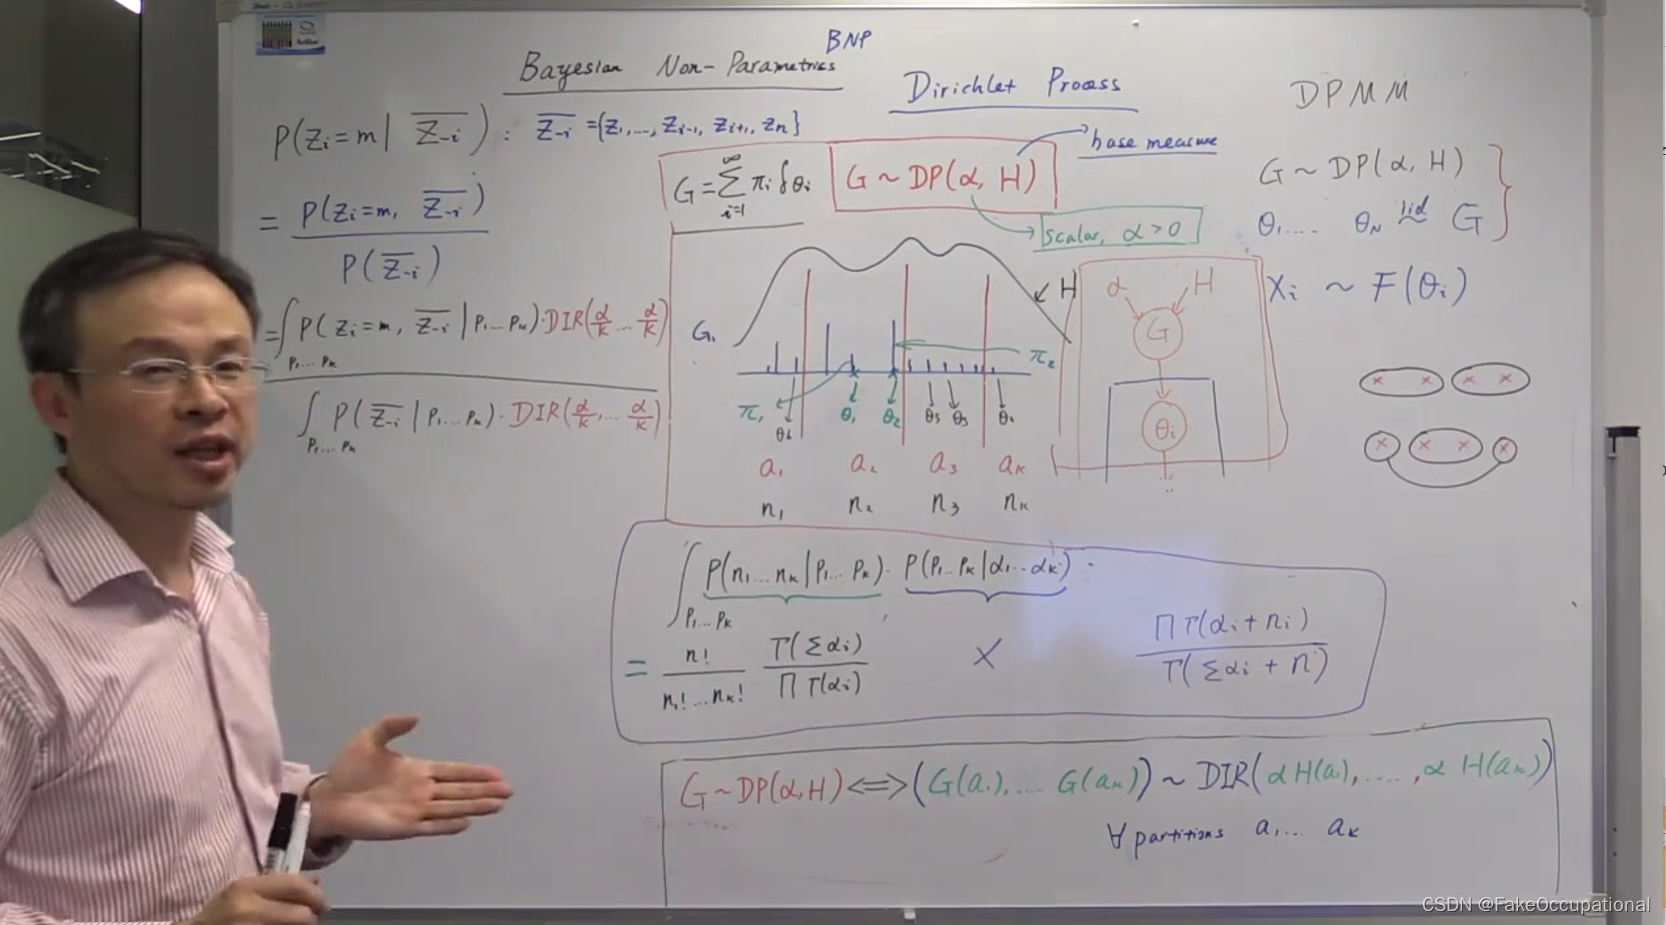 BNP
Bayesian Non-Parametrics
Dirichlet Process
DPMM
P(Zi=m| Z-i) : Z-i ={Z1,..., Zi-1, Zi+1, Zn}
= P(Zi=m, Z-i)
P(Z-i)
=∫ P(Zi=m, Z-i | P1...Pk)·DIR(α/k ... α/k)
P1...Pk
∫ P(Z-i | P1...Pk)·DIR(α/k,... α/k)
P1...Pk
G=∑ πi δθi
∞
i=1
G ~ DP(α, H)
base measure
Scalar, α>0
H
G1
π1
π2
θ6 θ1 θ2 θ5 θ3 θ4
a1 a2 a3 ak
n1 n2 n3 nk
α H
G
θi
G ~ DP(α, H)
θ1.... θN iid ~ G
Xi ~ F(θi)
∫ P(n1...nk|P1...Pk)· P(P1...Pk|α1...αk)
P1...Pk
= n! / n1!...nk! Γ(∑αi) / ∏ Γ(αi) × ∏ Γ(αi+ni) / Γ(∑αi + n)
G~DP(α,H) <=> (G(a1),... G(ak)) ~ DIR(αH(a1),....,α H(ak))
∀ partitions a1... ak
CSDN @FakeOccupational